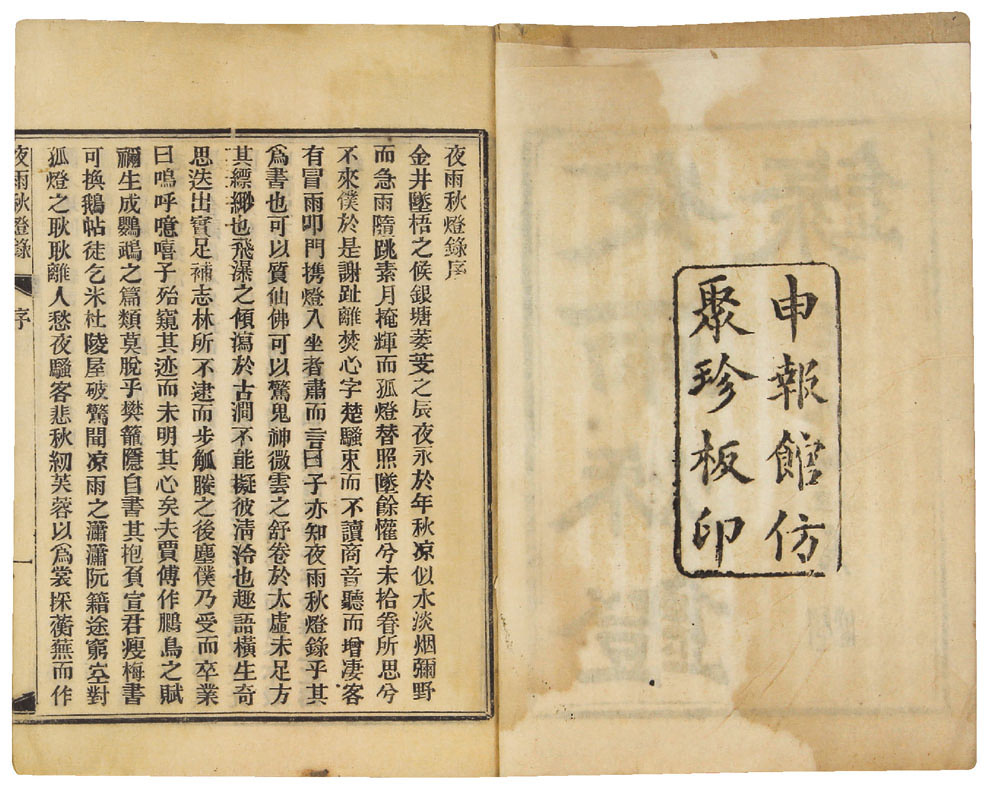 申報館仿
聚珍板印
夜雨秋燈錄序
金井墜梧之候銀塘菱芰之辰夜永於年秋凉似水淡烟彌野
而急雨隨跳素月掩輝而孤燈替照墜餘懽兮未拾眷所思兮
不來僕於是謝趾離焚心字楚騷束而不讀商音聽而增凄客
有冒雨叩門携燈入坐者肅而言曰子亦知夜雨秋燈錄乎其
爲書也可以質仙佛可以驚鬼神微雲之舒卷於太虛未足方
其縹緲也飛瀑之傾瀉於古澗不能擬彼淸泠也趣語橫生奇
思迭出實足補志林所不逮而步觚賸之後塵僕乃受而卒業
曰嗚呼噫嘻子殆窺其迹而未明其心矣夫賈傅作鵩鳥之賦
禰生成鸚鵡之篇類莫脫乎樊籠隱自書其抱負宣君瘦梅書
可換鵝帖徒乞米杜陵屋破驚聞凉雨之瀟瀟阮籍途窮空對
孤燈之耿耿離人愁夜騷客悲秋紉芙蓉以爲裳採蘅蕪而作
夜雨秋燈錄
序
一